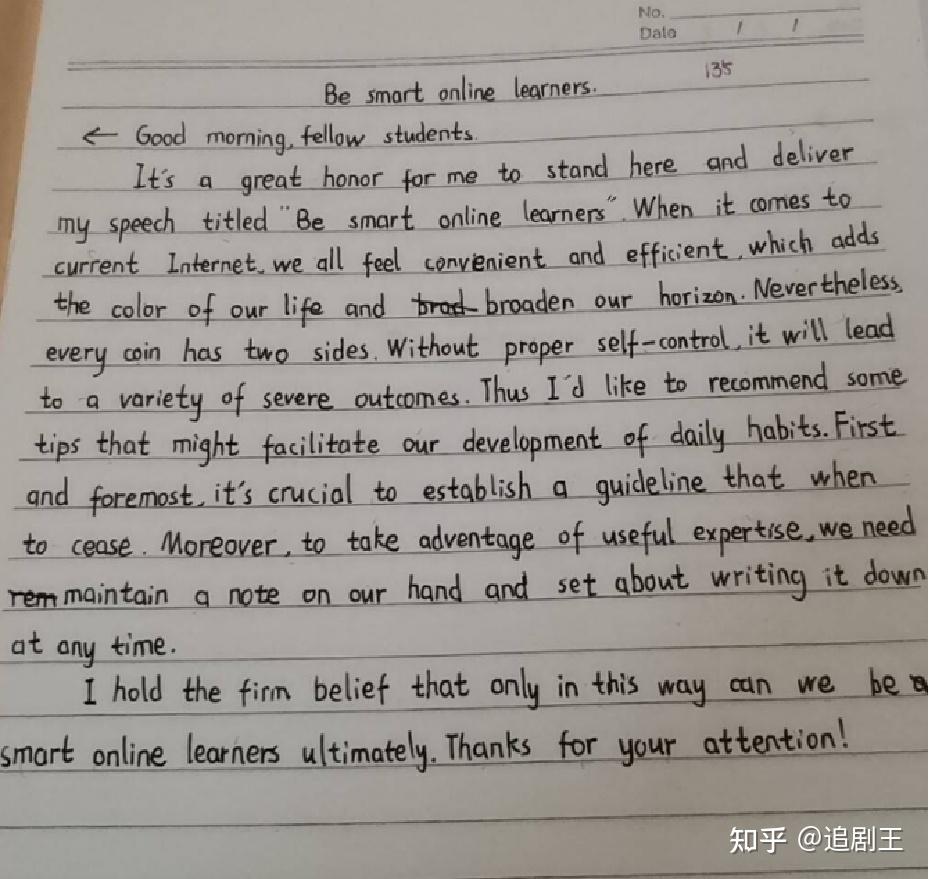 No.
Date / /
135
Be smart online learners.
← Good morning, fellow students.
It's a great honor for me to stand here and deliver
my speech titled "Be smart online learners". When it comes to
current Internet, we all feel convenient and efficient, which adds
the color of our life and brod broaden our horizon. Nevertheless,
every coin has two sides. Without proper self-control, it will lead
to a variety of severe outcomes. Thus I'd like to recommend some
tips that might facilitate our development of daily habits. First
and foremost, it's crucial to establish a guideline that when
to cease. Moreover, to take advantage of useful expertise, we need
rem maintain a note on our hand and set about writing it down
at any time.
I hold the firm belief that only in this way can we be a
smart online learners ultimately. Thanks for your attention!
知乎 @追剧王